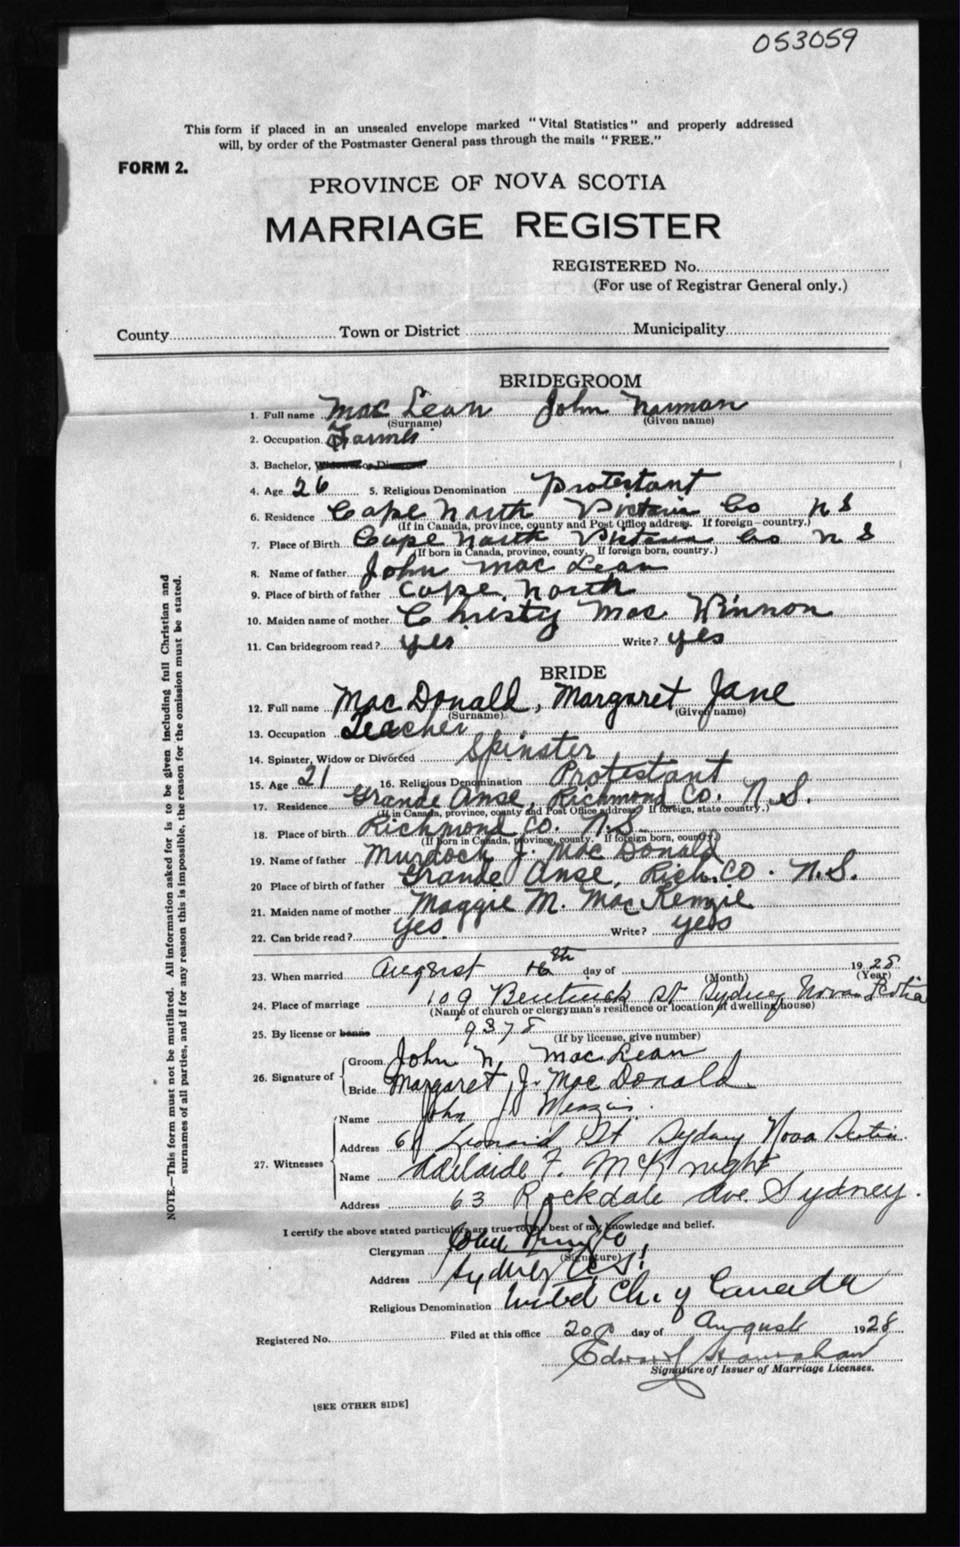 053059
This form if placed in an unsealed envelope marked "Vital Statistics" and properly addressed
will, by order of the Postmaster General pass through the mails "FREE."
FORM 2.
PROVINCE OF NOVA SCOTIA
MARRIAGE REGISTER
REGISTERED No.
(For use of Registrar General only.)
County Town or District Municipality
BRIDEGROOM
1. Full name Mac Lean John Norman
(Surname) (Given name)
2. Occupation Farmer
3. Bachelor, Widower or Divorced
4. Age 26 5. Religious Denomination Protestant
6. Residence Cape North Victoria Co N S
(If in Canada, province, county and Post Office address. If foreign—country.)
7. Place of Birth Cape North Victoria Co N S
(If born in Canada, province, county. If foreign born, country.)
8. Name of father John Mac Lean
9. Place of birth of father Cape North
10. Maiden name of mother Christy Mac Kinnon
11. Can bridegroom read? yes Write? yes
BRIDE
12. Full name Mac Donald, Margaret Jane
(Surname) (Given name)
13. Occupation Teacher
14. Spinster, Widow or Divorced Spinster
15. Age 21 16. Religious Denomination Protestant
17. Residence Grande Anse, Richmond Co. N.S.
(If in Canada, province, county and Post Office address. If foreign, state country.)
18. Place of birth Richmond Co. N.S.
(If born in Canada, province, county. If foreign born, country.)
19. Name of father Murdock J. Mac Donald
20 Place of birth of father Grande Anse, Rich. Co. N.S.
21. Maiden name of mother Maggie M. MacKenzie
22. Can bride read? yes. Write? yes
23. When married August 16th day of 1928
(Month) (Year)
24. Place of marriage 109 Bentinck St Sydney Nova Scotia
(Name of church or clergyman's residence or location of dwelling house)
25. By license or banns 9378
(If by license, give number)
26. Signature of
Groom John N. Mac Lean
Bride Margaret J. Mac Donald.
27. Witnesses
Name John
Address Leonard St Sydney Nova Scotia.
Name Adelaide F. McKnight
Address 63 Rockdale Ave. Sydney.
I certify the above stated particulars are true to the best of my knowledge and belief.
Clergyman John
(Signature)
Address Sydney
Religious Denomination United Ch. of Canada
Registered No. Filed at this office 20 day of August 1928
Edward
Signature of Issuer of Marriage Licenses.
[SEE OTHER SIDE]
NOTE.—This form must not be mutilated. All information asked for is to be given including full Christian and
surnames of all parties, and if for any reason this is impossible, the reason for the omission must be stated.